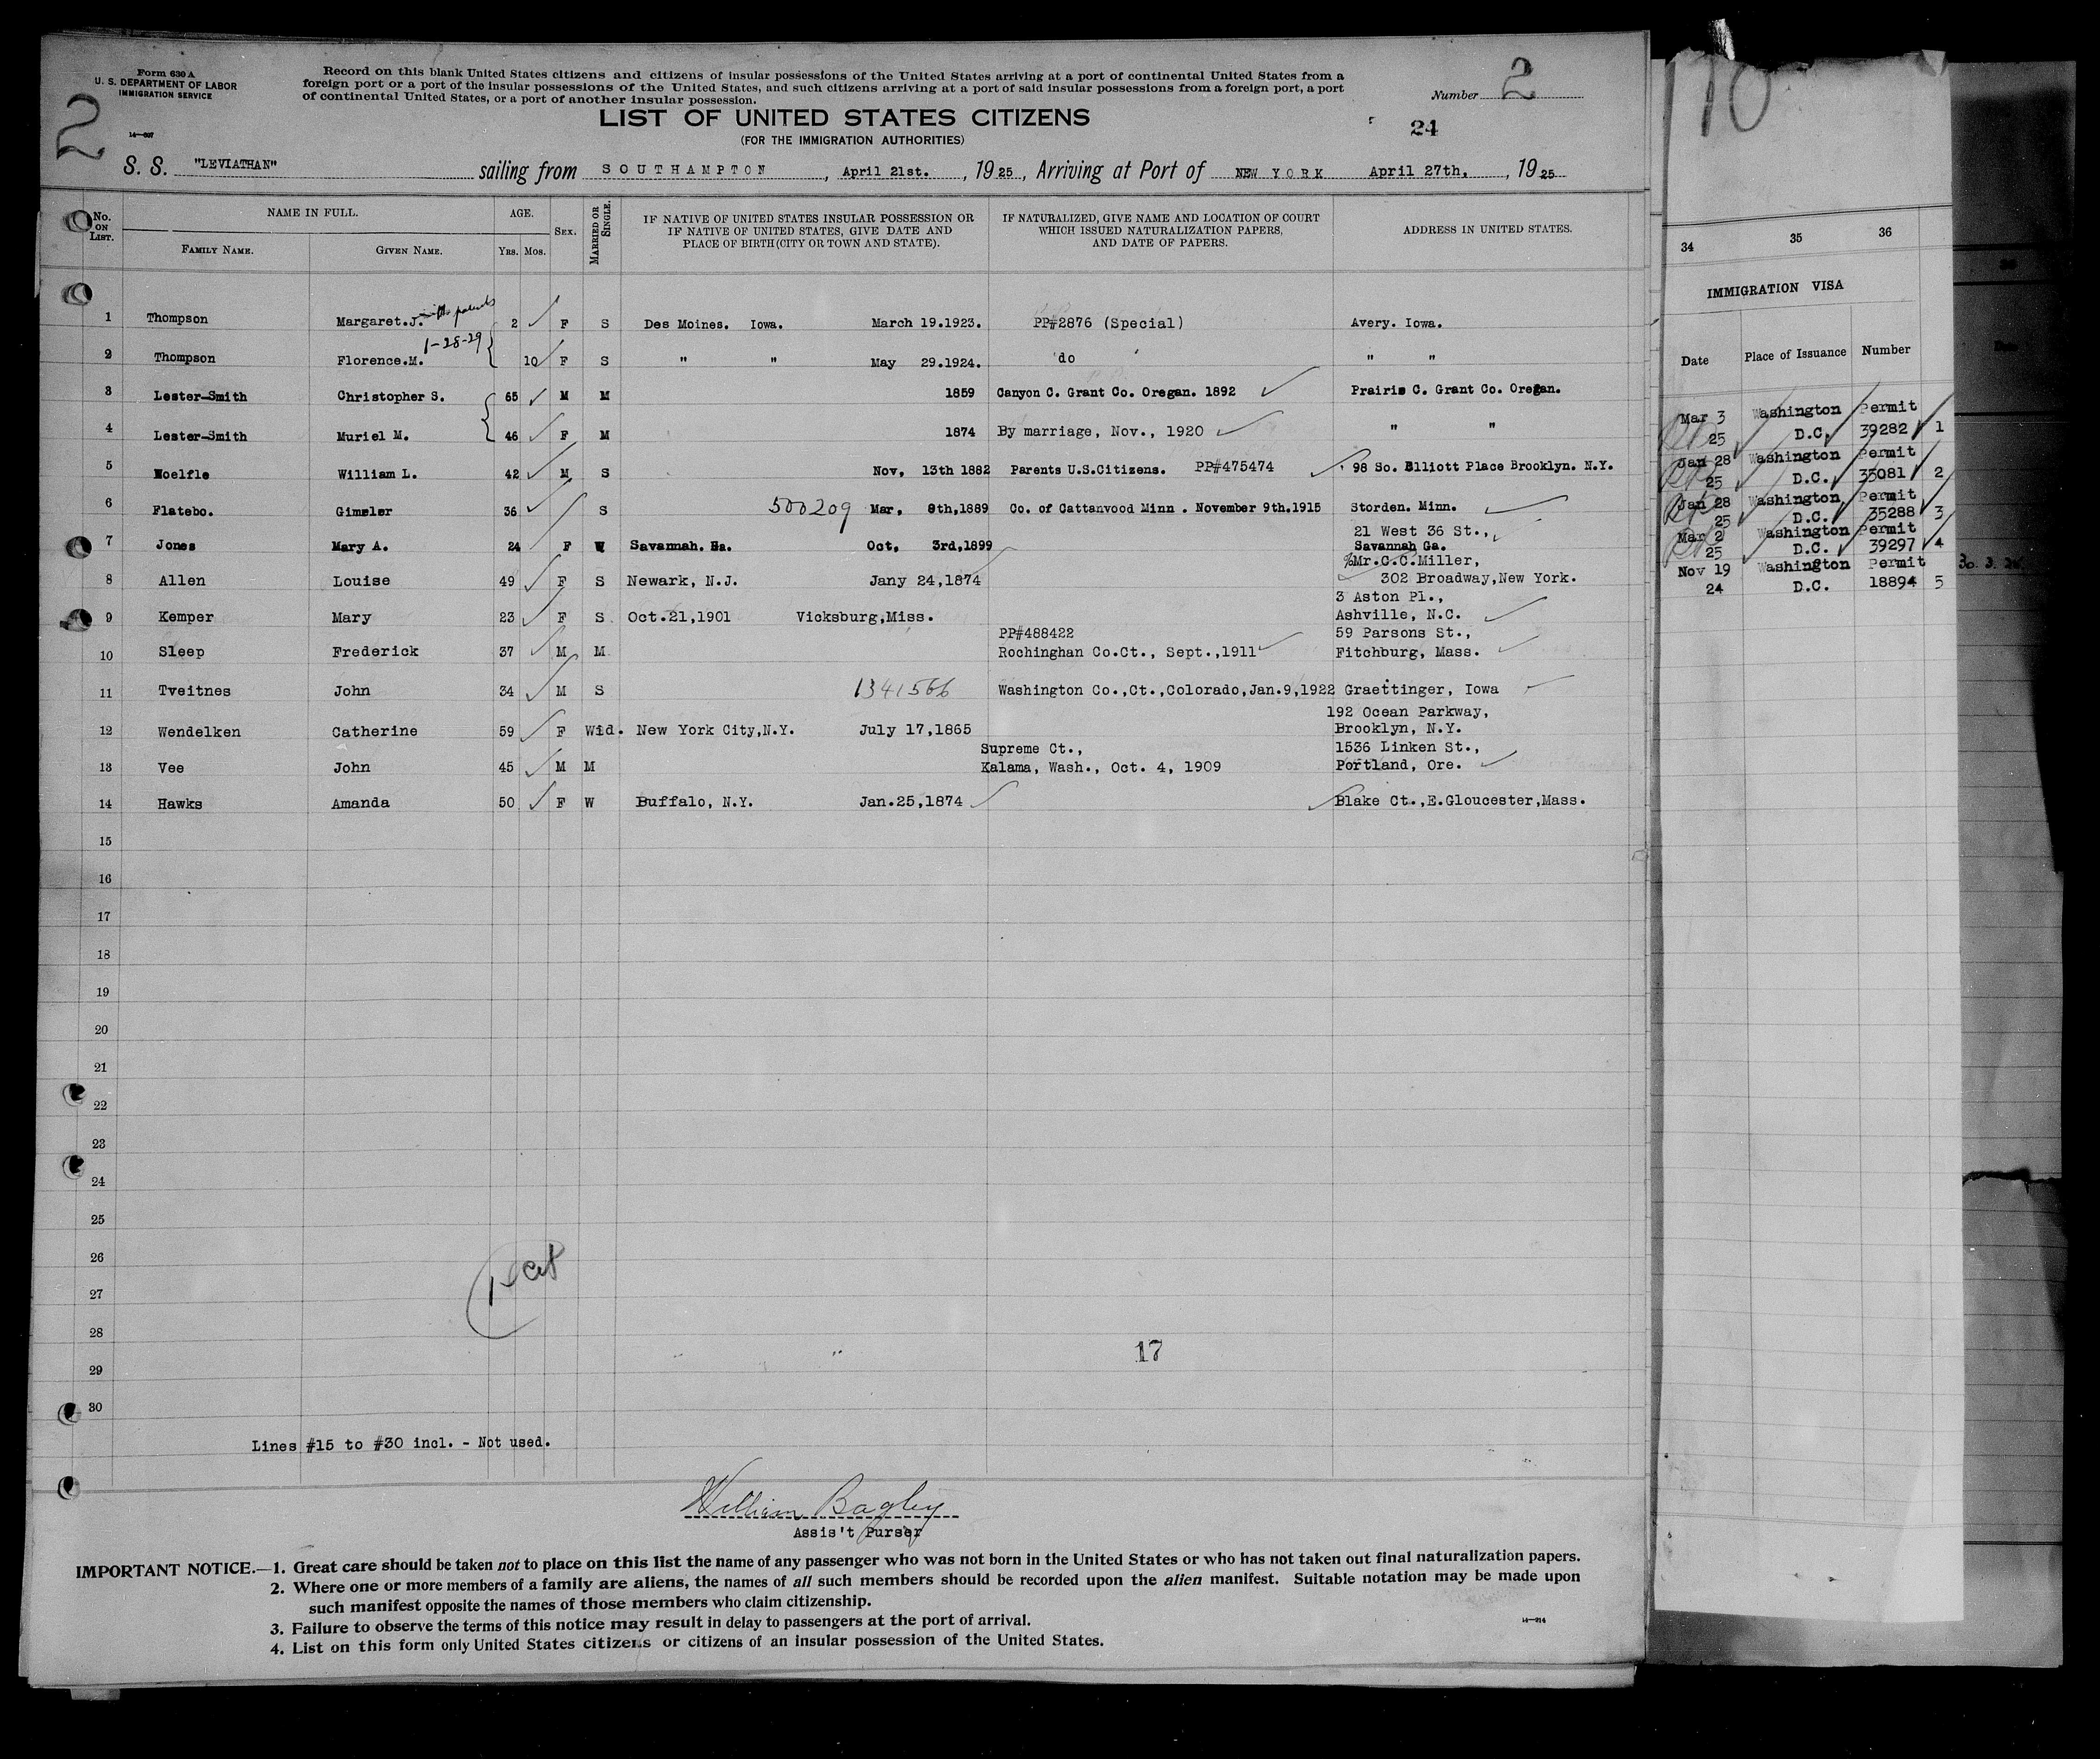 Form 630 A
U. S. DEPARTMENT OF LABOR
IMMIGRATION SERVICE
14—807
2
Record on this blank United States citizens and citizens of insular possessions of the United States arriving at a port of continental United States from a
foreign port or a port of the insular possessions of the United States, and such citizens arriving at a port of said insular possessions from a foreign port, a port
of continental United States, or a port of another insular possession.
Number 2
LIST OF UNITED STATES CITIZENS
24
(FOR THE IMMIGRATION AUTHORITIES)
S. S. "LEVIATHAN" sailing from SOUTHAMPTON, April 21st., 1925, Arriving at Port of NEW YORK April 27th, 1925
No. ON LIST. NAME IN FULL. AGE. SEX. MARRIED OR SINGLE. IF NATIVE OF UNITED STATES INSULAR POSSESSION OR IF NATIVE OF UNITED STATES, GIVE DATE AND PLACE OF BIRTH (CITY OR TOWN AND STATE). IF NATURALIZED, GIVE NAME AND LOCATION OF COURT WHICH ISSUED NATURALIZATION PAPERS, AND DATE OF PAPERS. ADDRESS IN UNITED STATES.
FAMILY NAME. GIVEN NAME. YRS. MOS.
1 Thompson Margaret.J. 2 F S Des Moines. Iowa. March 19.1923. PP#2876 (Special) Avery. Iowa.
1-28-29
2 Thompson Florence.M. 10 F S " " May 29.1924. do " "
3 Lester-Smith Christopher S. 65 M M 1859 Canyon C. Grant Co. Oregan. 1892 Prairie C. Grant Co. Oregan.
4 Lester-Smith Muriel M. 46 F M 1874 By marriage, Nov., 1920 " "
5 Hoelfle William L. 42 M S Nov, 13th 1882 Parents U.S.Citizens. PP#475474 98 So. Elliott Place Brooklyn. N.Y.
6 Flatebo. Gimsler 36 S 500209 Mar, 8th,1889 Co. of Cattanvood Minn . November 9th.1915 Storden. Minn.
21 West 36 St.,
7 Jones Mary A. 24 F W Savannah. Ga. Oct, 3rd,1899 Savannah Ga.
%Mr.C.C.Miller,
8 Allen Louise 49 F S Newark, N.J. Jany 24,1874 302 Broadway,New York.
3 Aston Pl.,
9 Kemper Mary 23 F S Oct.21,1901 Vicksburg,Miss. Ashville, N.C.
PP#488422 59 Parsons St.,
10 Sleep Frederick 37 M M Rochinghan Co.Ct., Sept.,1911 Fitchburg, Mass.
11 Tveitnes John 34 M S 1341566 Washington Co.,Ct.,Colorado,Jan.9,1922 Graettinger, Iowa
192 Ocean Parkway,
12 Wendelken Catherine 59 F Wid. New York City,N.Y. July 17,1865 Brooklyn, N.Y.
Supreme Ct., 1536 Linken St.,
13 Vee John 45 M M Kalama, Wash., Oct. 4, 1909 Portland, Ore.
14 Hawks Amanda 50 F W Buffalo, N.Y. Jan.25,1874 Blake Ct.,E.Gloucester,Mass.
15
16
17
18
19
20
21
22
23
24
25
26
27
28
17
29
30
Lines #15 to #30 incl. - Not used.
William Bagley
Assis't Purser
IMPORTANT NOTICE.—1. Great care should be taken not to place on this list the name of any passenger who was not born in the United States or who has not taken out final naturalization papers.
2. Where one or more members of a family are aliens, the names of all such members should be recorded upon the alien manifest. Suitable notation may be made upon
such manifest opposite the names of those members who claim citizenship.
3. Failure to observe the terms of this notice may result in delay to passengers at the port of arrival.
14—914
4. List on this form only United States citizens or citizens of an insular possession of the United States.
34 35 36
IMMIGRATION VISA
Date Place of Issuance Number
Mar 3 Washington Permit
25 D.C. 39282 1
Jan 28 Washington Permit
25 D.C. 35081 2
Jan 28 Washington Permit
25 D.C. 35288 3
Mar 2 Washington Permit
25 D.C. 39297 4
Nov 19 Washington Permit
24 D.C. 18894 5